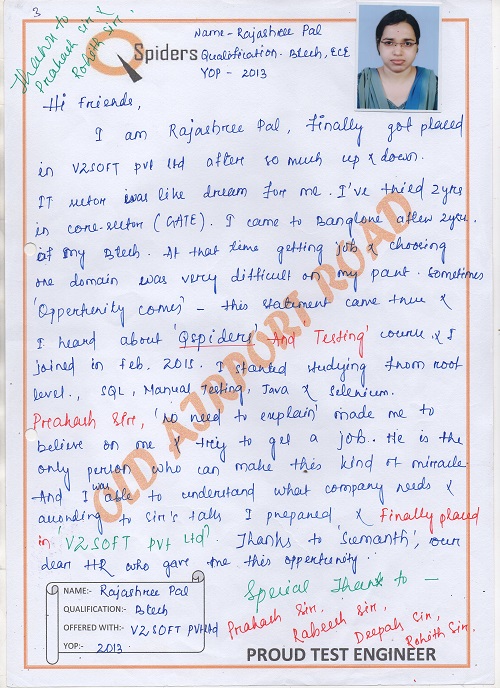 3
Thanks to
Prakash sir &
Rohith sir.
QSpiders
Name - Rajashree Pal
Qualification - Btech, ECE
YOP - 2013
Hi Friends,
I am Rajashree Pal, Finally got placed
in V2SOFT Pvt Ltd after so much up & down.
IT sector was like dream for me. I've tried 2yrs
in core-sector (GATE). I came to Banglore after 2yrs.
of my Btech. At that time getting job & choosing
one domain was very difficult on my part. Sometimes
'Opportunity comes' - this statement came true &
I heard about 'Qspiders' And Testing' course & I
joined in Feb. 2015. I started studying from root
level., SQL, Manual Testing, Java & Selenium.
Prakash Sir, 'No need to explain' made me to
believe on me & try to get a job. He is the
only person who can make this kind of miracle.
And I was able to understand what company needs &
according to Sir's talks I prepared & Finally placed
in 'V2SOFT Pvt Ltd'. Thanks to 'Sumanth', our
dear HR who gave me this opportunity..
OLD AIRPORT ROAD
Special Thank to -
Prakash Sir,
Rabeesh Sir,
Deepak Sir,
Rohith Sir.
NAME:- Rajashree Pal
QUALIFICATION:- Btech
OFFERED WITH:- V2SOFT PVt Ltd
YOP:- 2013
PROUD TEST ENGINEER